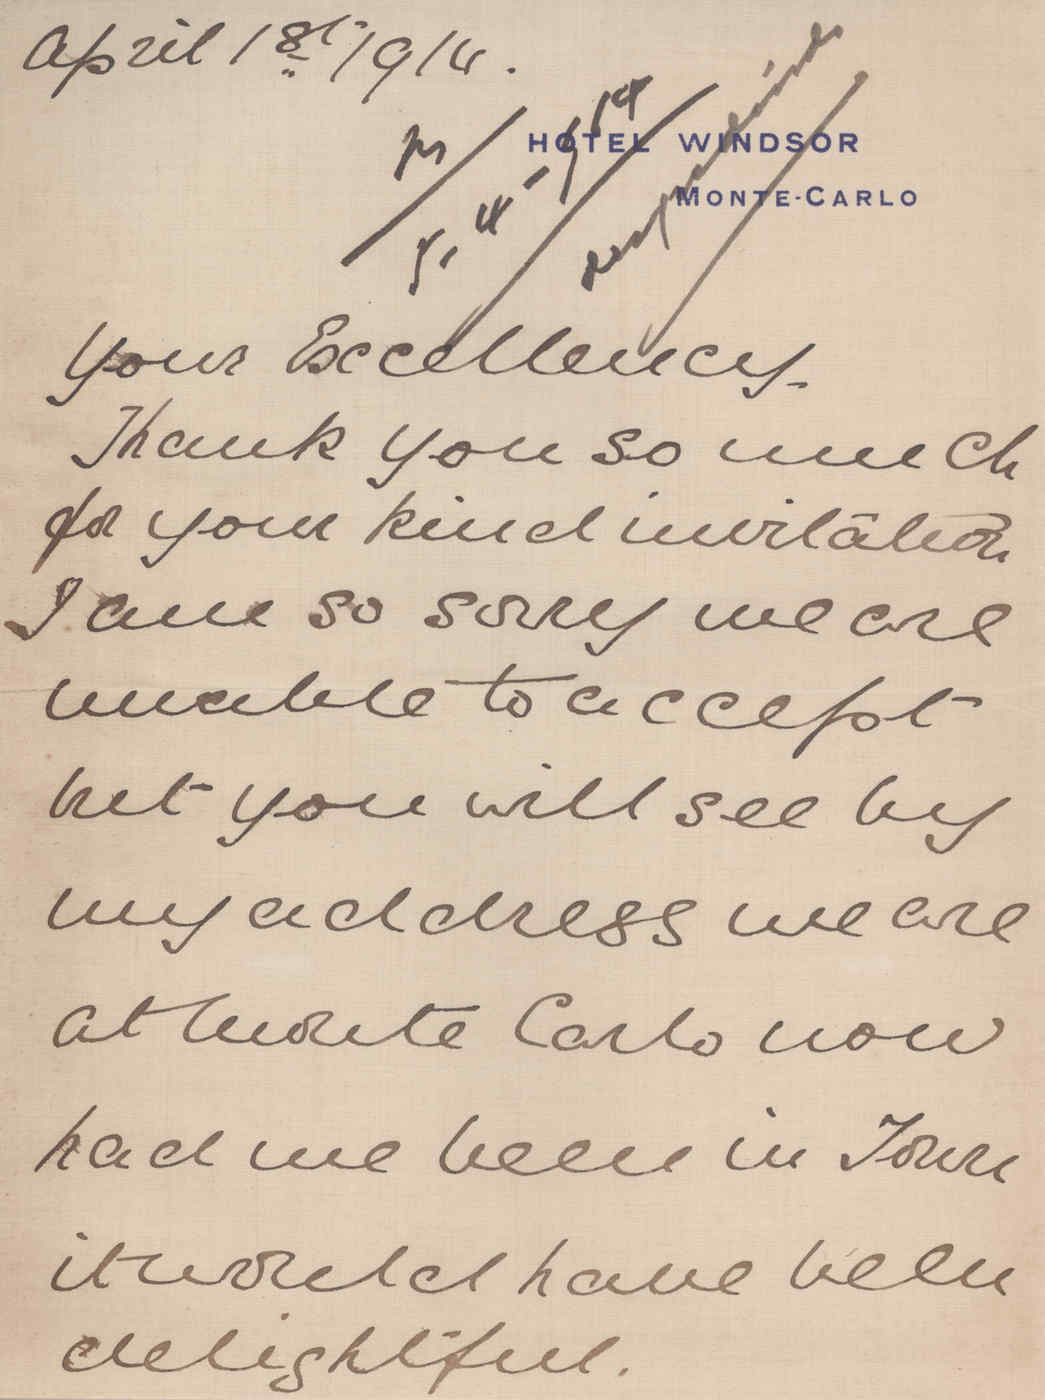 April 1st 1914.
HOTEL WINDSOR
MONTE-CARLO
5-4-1914
Your Excellency.
Thank you so much
for your kind invitation
I am so sorry we are
unable to accept
but you will see by
my address we are
at Monte Carlo now
had we been in Town
it would have been
delightful.